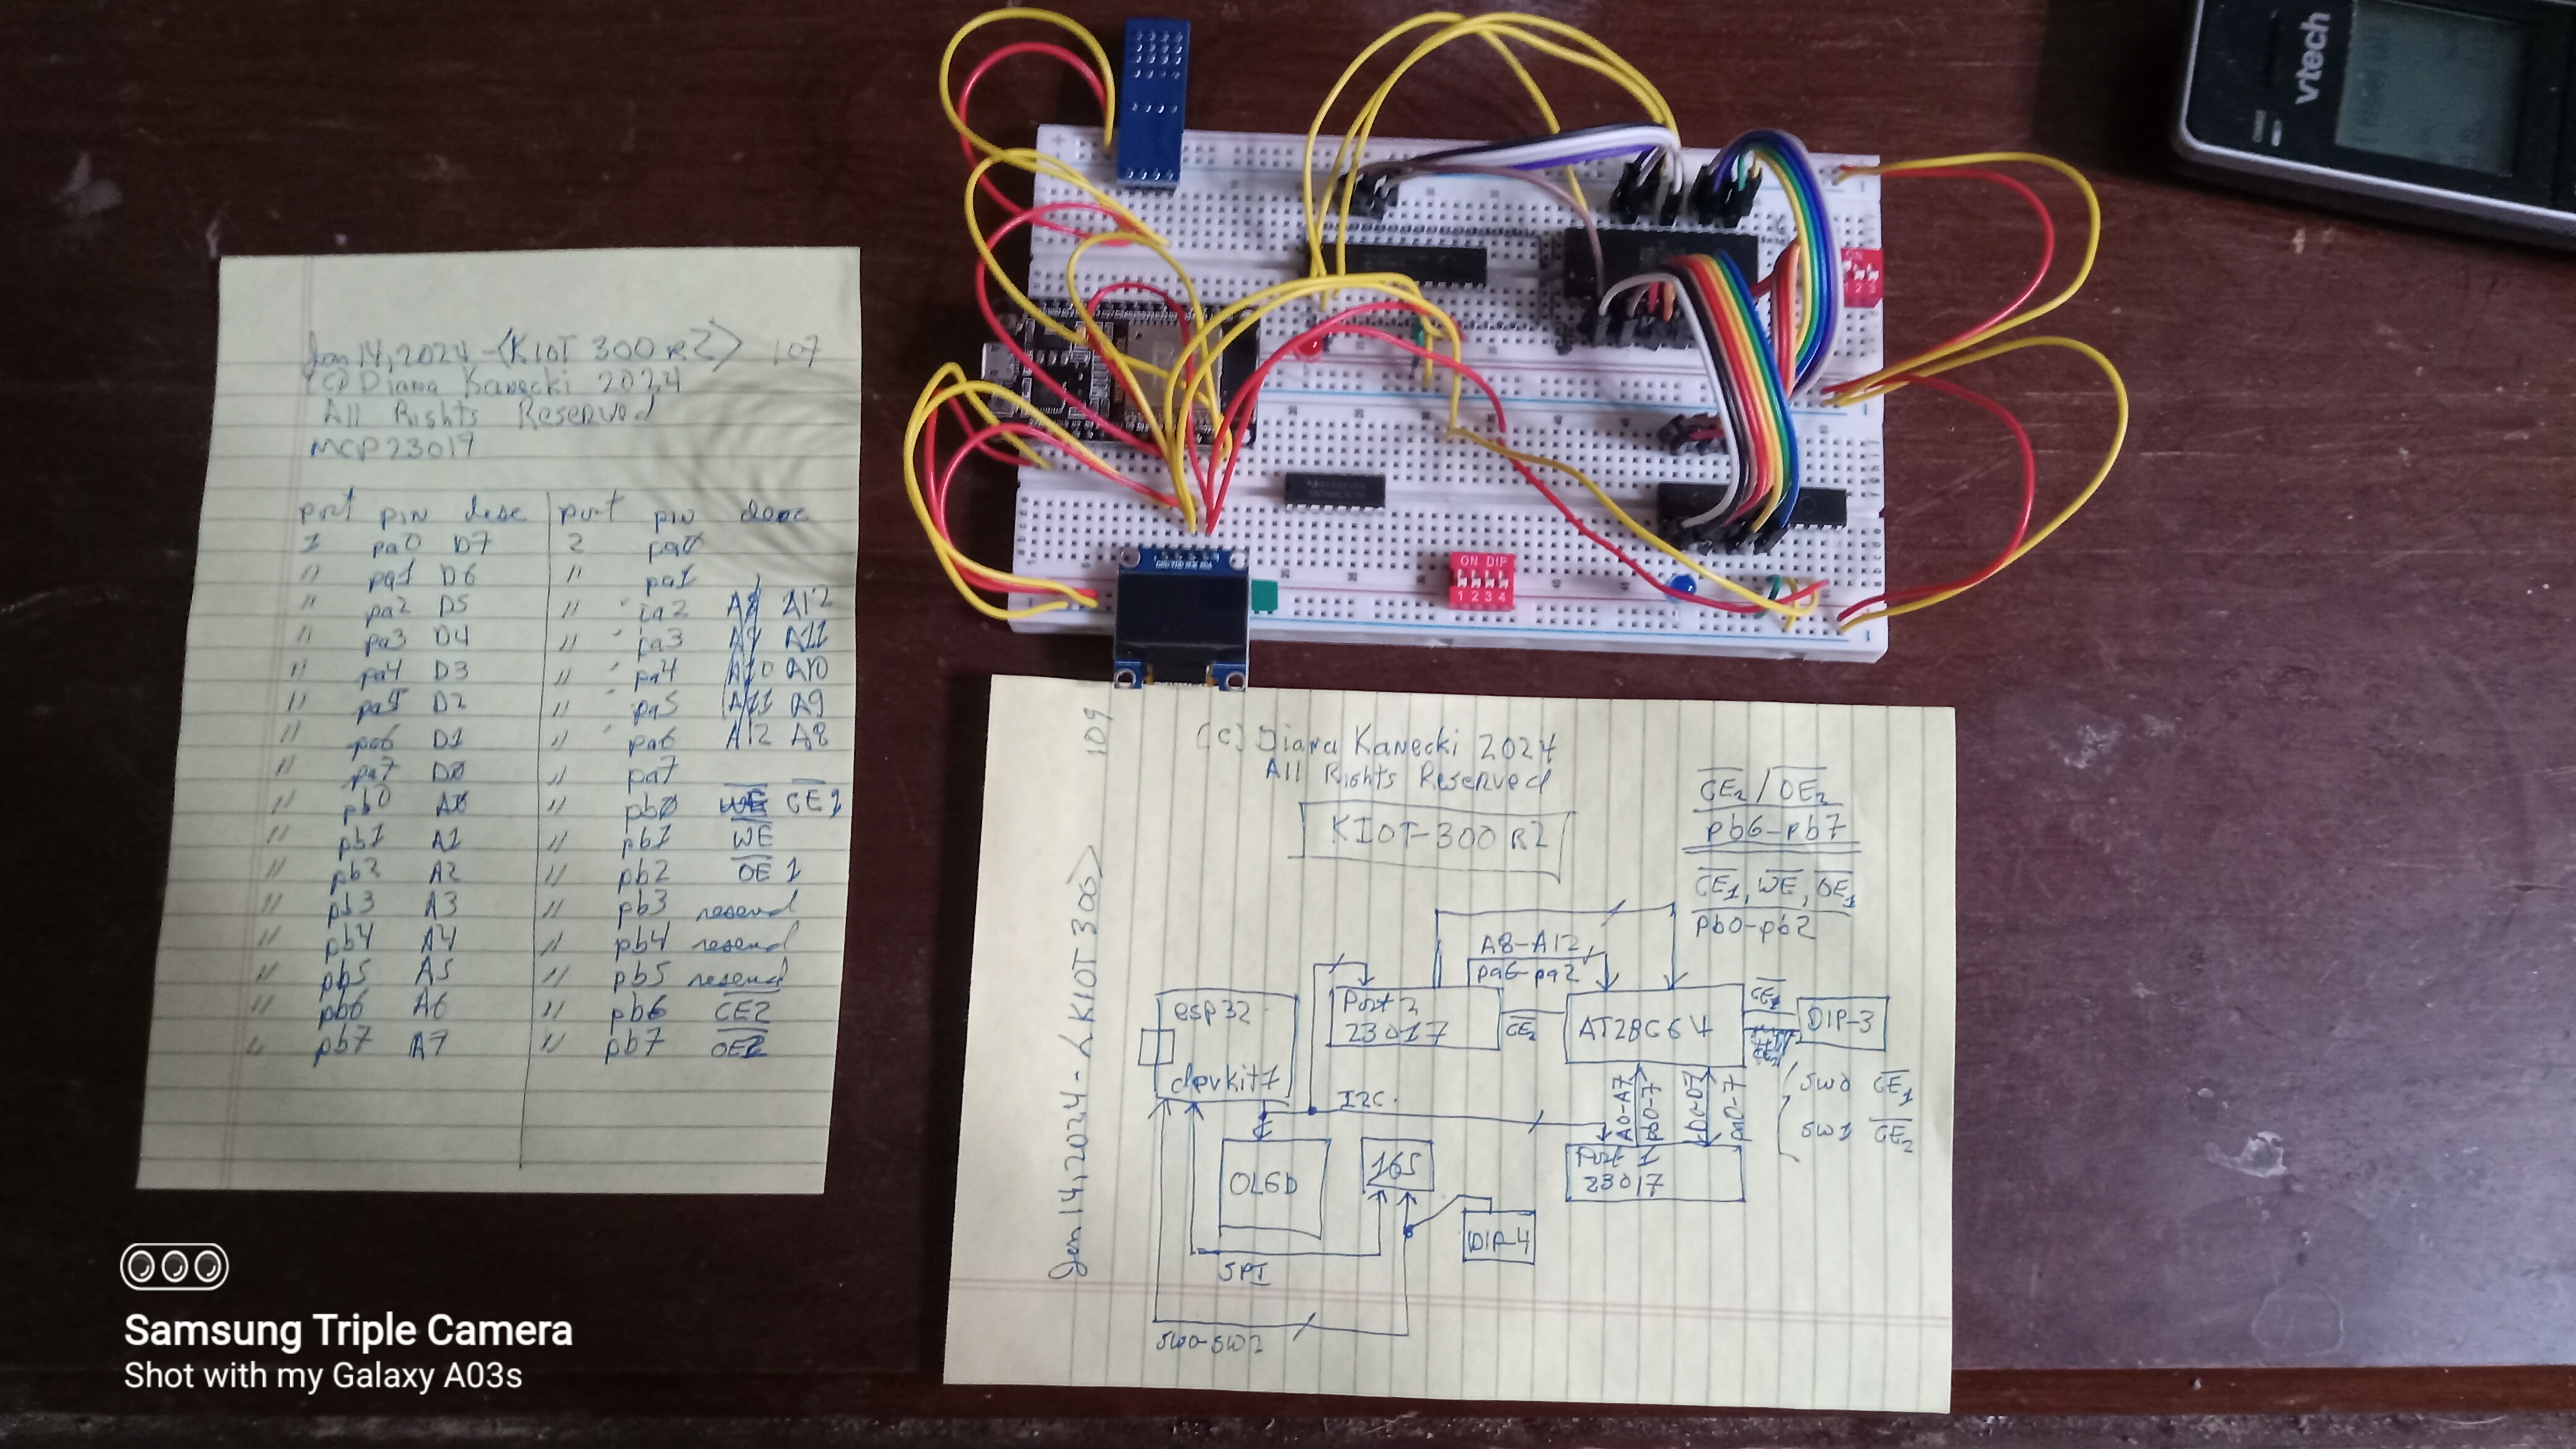 Jan 14, 2024 - <KIOT 300 R2> 107
(C) Diana Kanecki 2024
All Rights Reserved
MCP23017
port pin desc port pin desc
1 pa0 D7 2 pa0
" pa1 D6 " pa1
" pa2 D5 " pa2 A8 A12
" pa3 D4 " pa3 A9 A11
" pa4 D3 " pa4 A10 A10
" pa5 D2 " pa5 A11 A9
" pa6 D1 " pa6 A12 A8
" pa7 D0 " pa7
" pb0 A0 " pb0 WE CE1
" pb1 A1 " pb1 WE
" pb2 A2 " pb2 OE 1
" pb3 A3 " pb3 reserd
" pb4 A4 " pb4 reserd
" pb5 A5 " pb5 reserd
" pb6 A6 " pb6 CE2
" pb7 A7 " pb7 OE2
vtech
ON
1 2 3
ON DIP
1 2 3 4
Jan 14, 2024 - <KIOT 300> 109
(C) Diana Kanecki 2024
All Rights Reserved
KIOT-300 R2
CE2 / OE2
pb6-pb7
CE1, WE, OE1
pb0-pb2
A8-A12
pa6-pa2
esp32
devkit1
Port 2
23017
CE2
AT28C64
CE1
DIP-3
SW0 CE1
SW1 CE2
I2C
A0-A7
pb0-7
D0-D7
pa0-7
Port 1
23017
OLED
165
DIP-4
SPI
SW0-SW2
Samsung Triple Camera
Shot with my Galaxy A03s